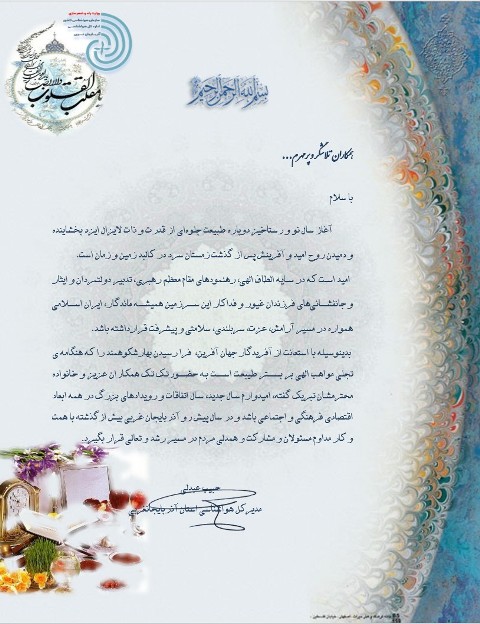 یا مقلب القلوب
بسم الله الرحمن الرحیم
همکاران تلاشگر و پرمهرم...
با سلام
آغاز سال نو و رستاخیز دوباره طبیعت جلوه‌ای از قدرت و ذات لایزال ایزد بخشاینده
و دمیدن روح امید و آفرینش پس از گذشت زمستان سرد در کالبد زمین و زمان است.
امید است که در سایه الطاف الهی، رهنمودهای مقام معظم رهبری، تدبیر دولتمردان و ایثار
و جانفشانی‌های فرزندان غیور و فداکار این سرزمین همیشه ماندگار، ایران اسلامی
همواره در مسیر آرامش، عزت، سربلندی، سلامتی و پیشرفت قرار داشته باشد.
بدینوسیله با استعانت از آفریدگار جهان آفرین، فرا رسیدن بهار شکوهمند را که هنگامه ی
تجلی مواهب الهی بر بستر طبیعت است به حضور تک تک همکاران عزیز و خانواده
محترمشان تبریک گفته، امیدوارم سال جدید، سال اتفاقات و رویدادهای بزرگ در همه ابعاد
اقتصادی فرهنگی و اجتماعی باشد و در سال پیش رو آذربایجان غربی بیش از گذشته با همت
و کار مداوم مسئولان و مشارکت و همدلی مردم در مسیر رشد و تعالی قرار بگیرد.
حبیب عبدلی
مدیر کل هواشناسی استان آذربایجانغربی